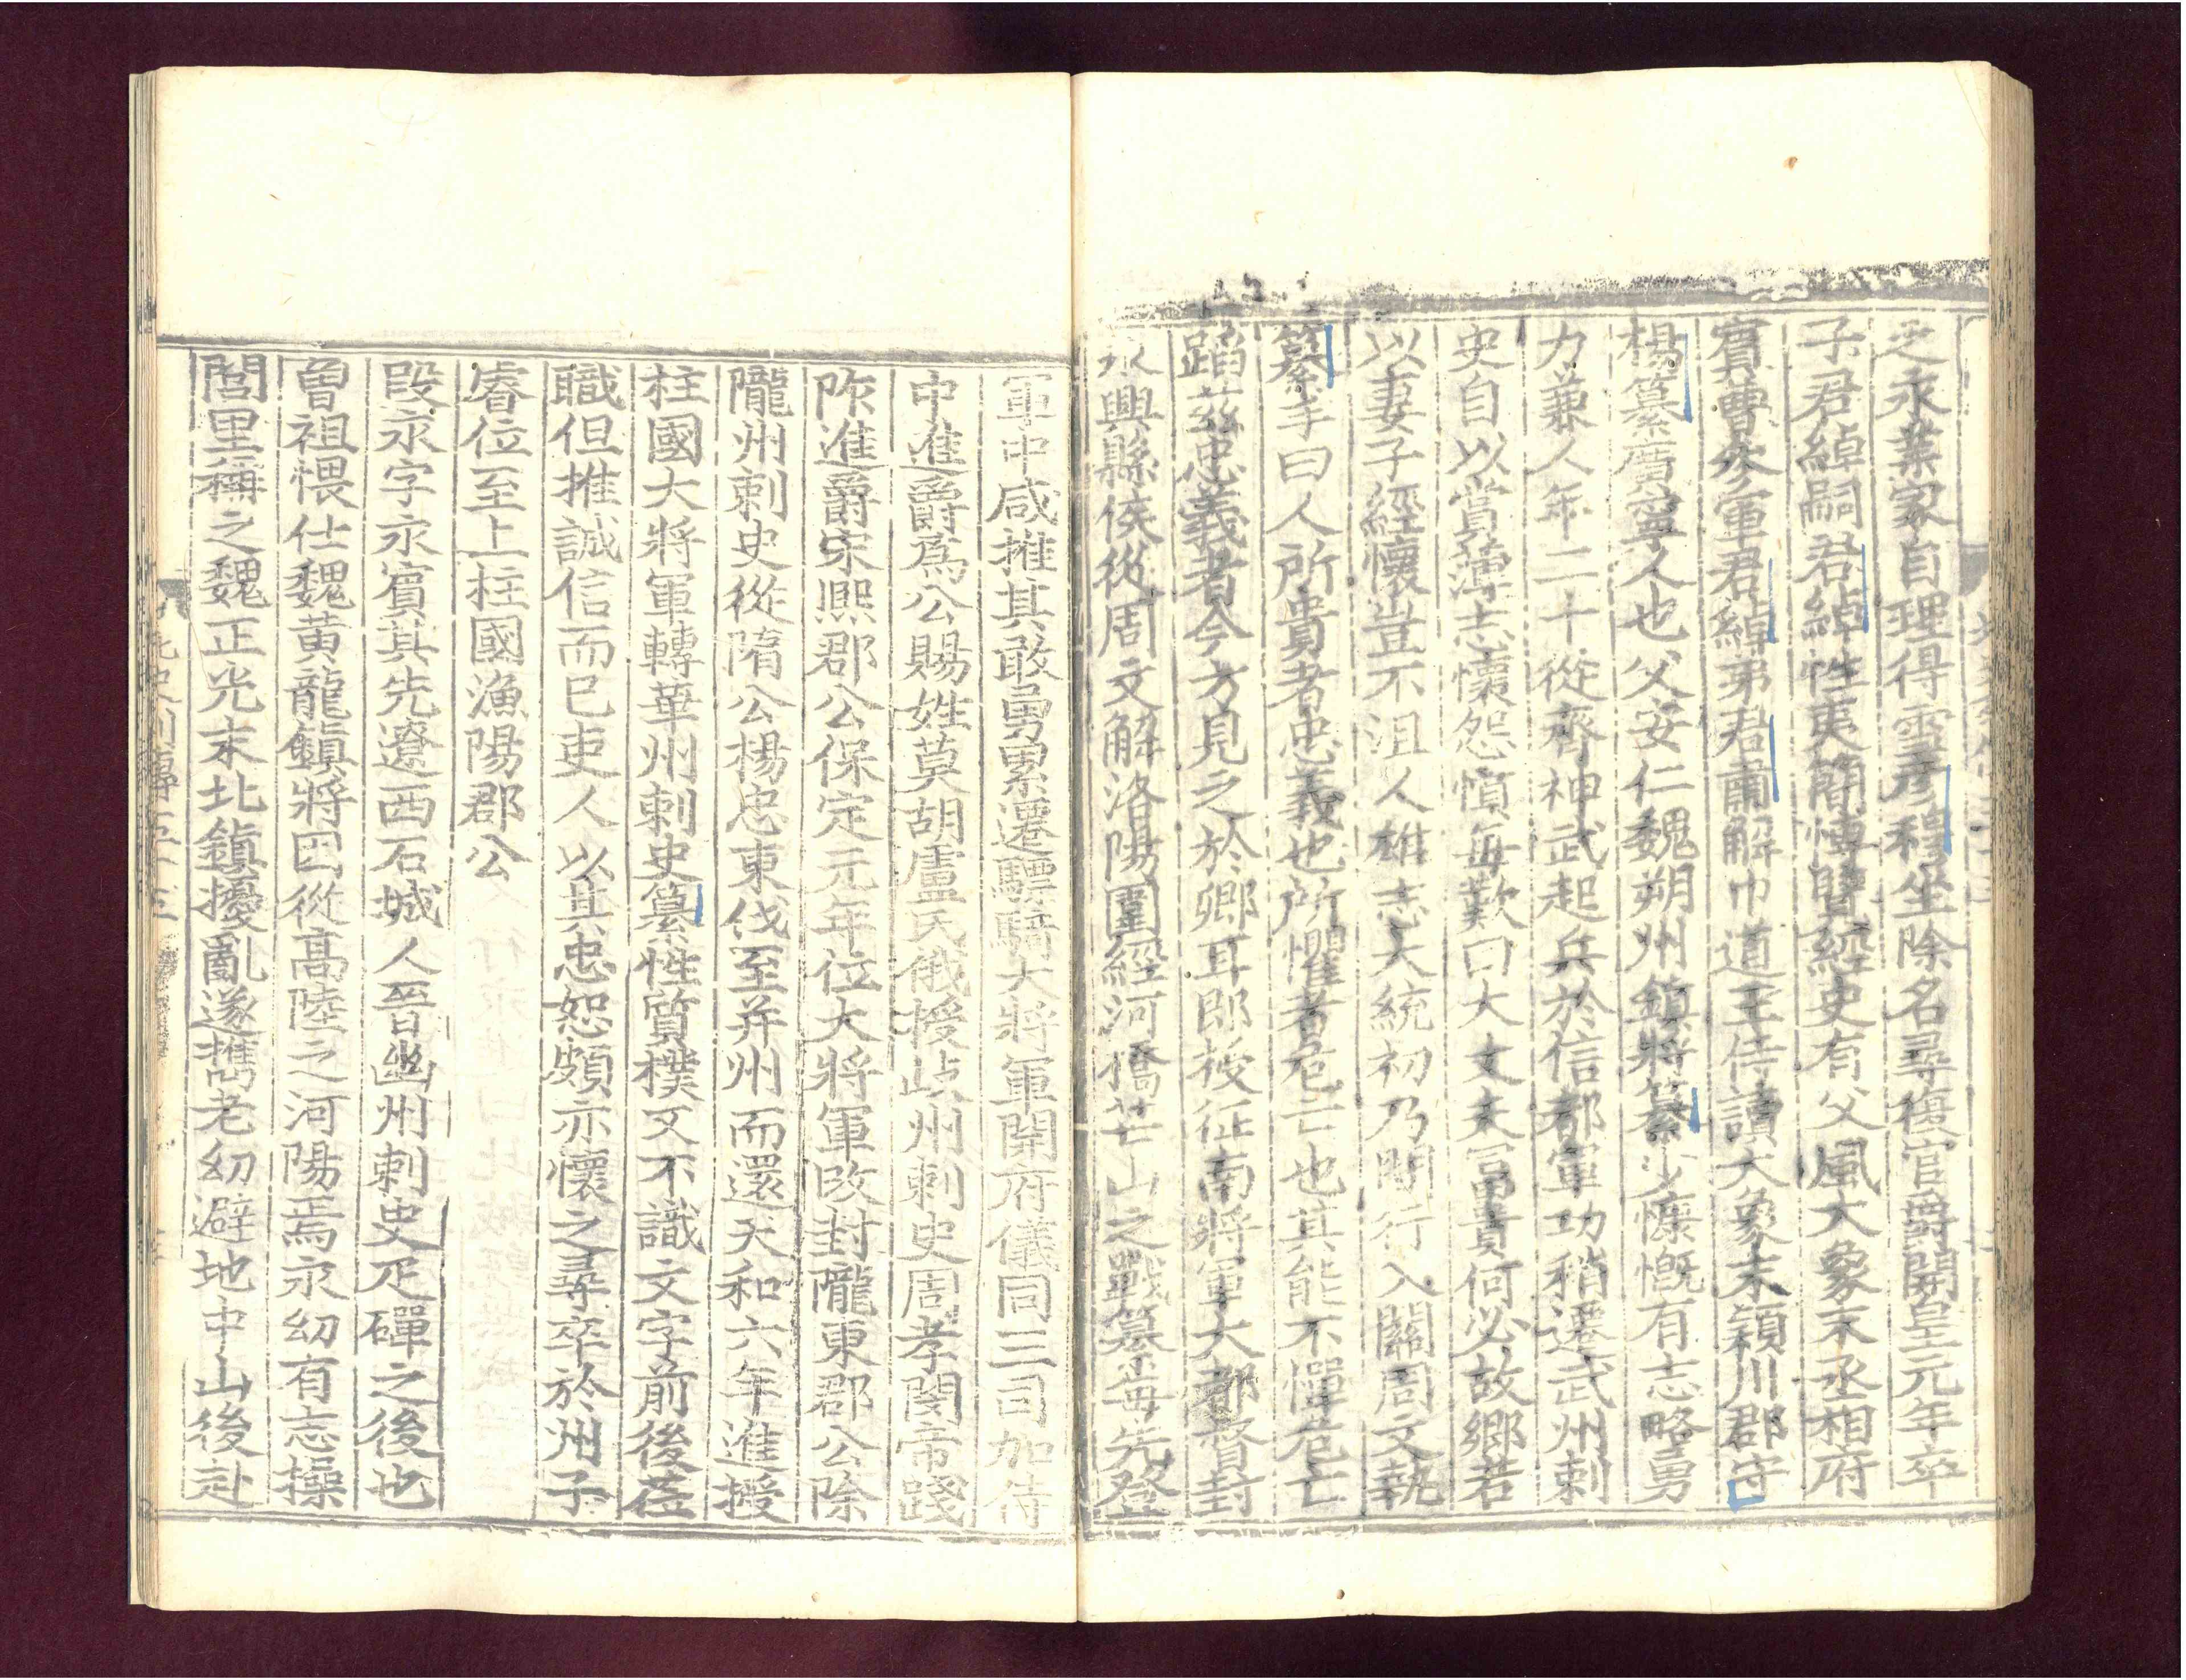 之永業家自理得雪彦穆坐除名尋復官爵開皇元年卒
子君綽嗣君綽性夷簡博覽經史有父風大象末丞相府
賓曹參軍君綽弟君肅解巾道王侍讀大象末潁川郡守
楊纂廣寧人也父安仁魏朔州鎮將纂少慷慨有志略勇
力兼人年二十從齊神武起兵於信都軍功稍遷武州刺
史自以賞薄志懷怨憤每歎曰大丈夫富貴何必故鄉若
以妻子經懷豈不沮人雄志大統初乃間行入關周文執
纂手曰人所貴者忠義也所懼者危亡也其能不憚危亡
蹈茲忠義者今方見之於卿耳即授征南將軍大都督封
永興縣侯從周文解洛陽圍經河橋芒山之戰纂每先登
軍中咸推其敢勇累遷驃騎大將軍開府儀同三司加侍
中進爵爲公賜姓莫胡盧氏俄授岐州刺史周孝閔帝踐
阼進爵宋熙郡公保定元年位大將軍改封隴東郡公除
隴州刺史從隋公楊忠東伐至并州而還天和六年進授
柱國大將軍轉華州刺史纂性質樸又不識文字前後莅
職但推誠信而已吏人以其忠恕頗亦懷之尋卒於州子
睿位至上柱國漁陽郡公
段永字永賓其先遼西石城人晉幽州刺史疋磾之後也
曾祖愄仕魏黃龍鎮將因從高陸之河陽焉永幼有志操
閭里稱之魏正光末北鎮擾亂遂攜老幼避地中山後赴